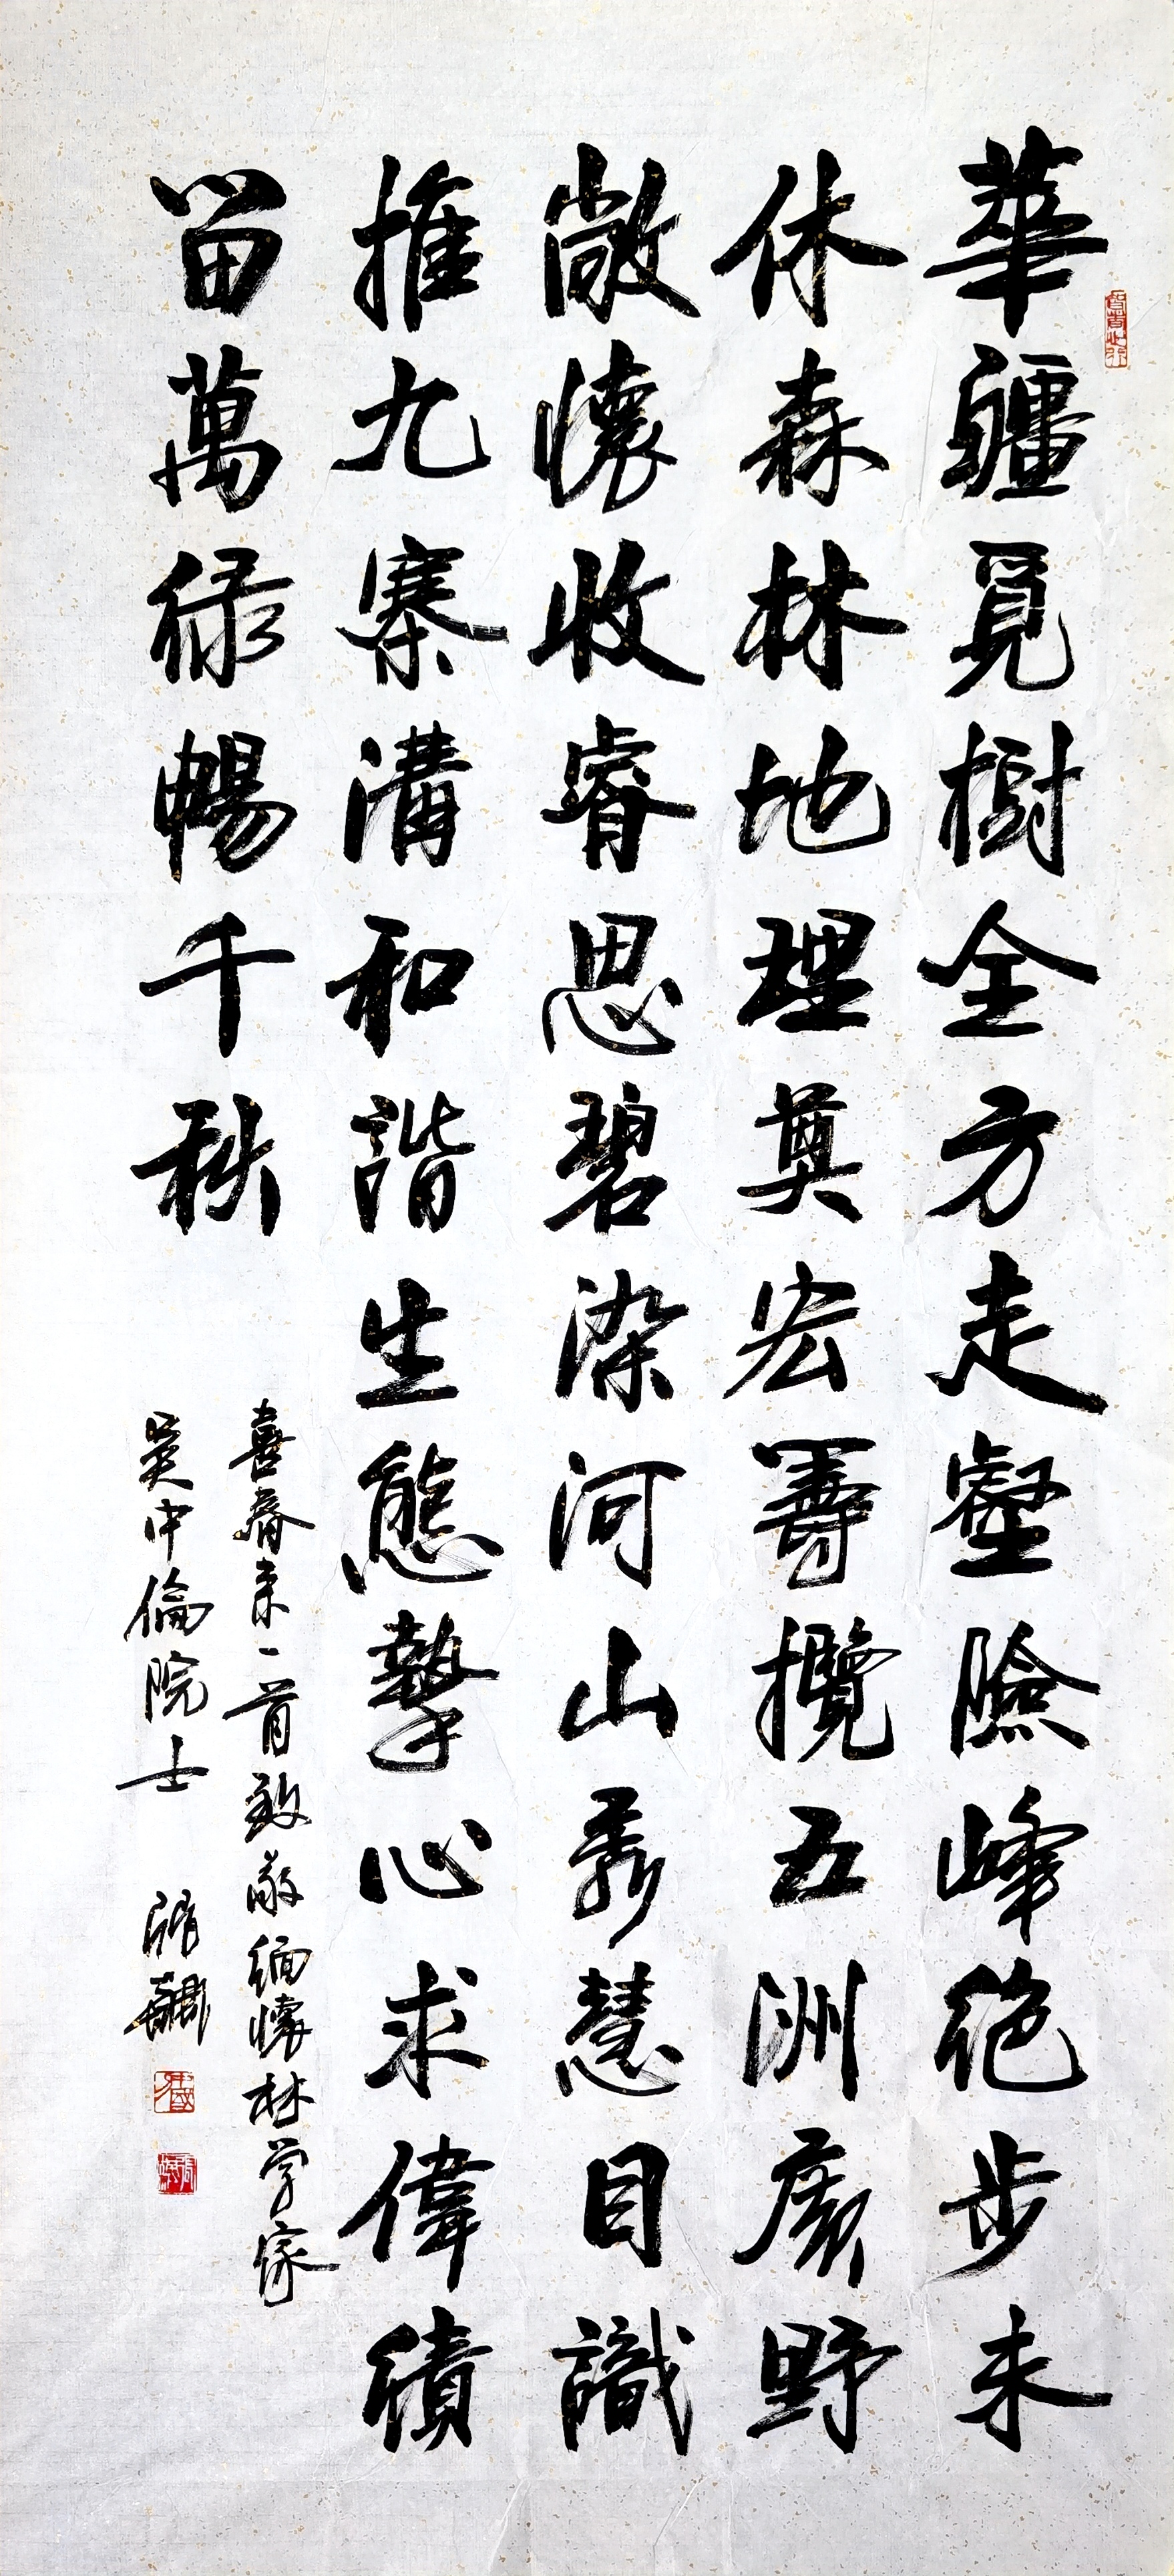 華疆覓樹全方走壑險峰絶步未
休森林地理奠宏籌攬五洲廣野
敞懷收睿思碧染河山秀慧目識
推九寨溝和諧生態摯心求偉績
留萬緑暢千秋
喜春来一首致敬緬懷林学家
吴中倫院士